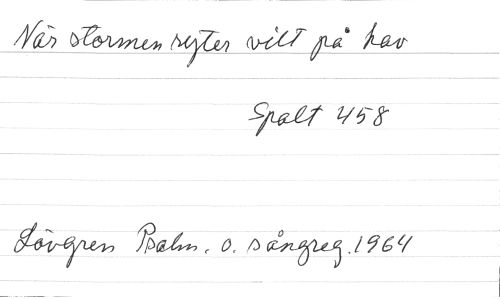 När stormen ryter vilt på hav
Spalt 458
Lövgren Psalm. o. sångreg. 1964